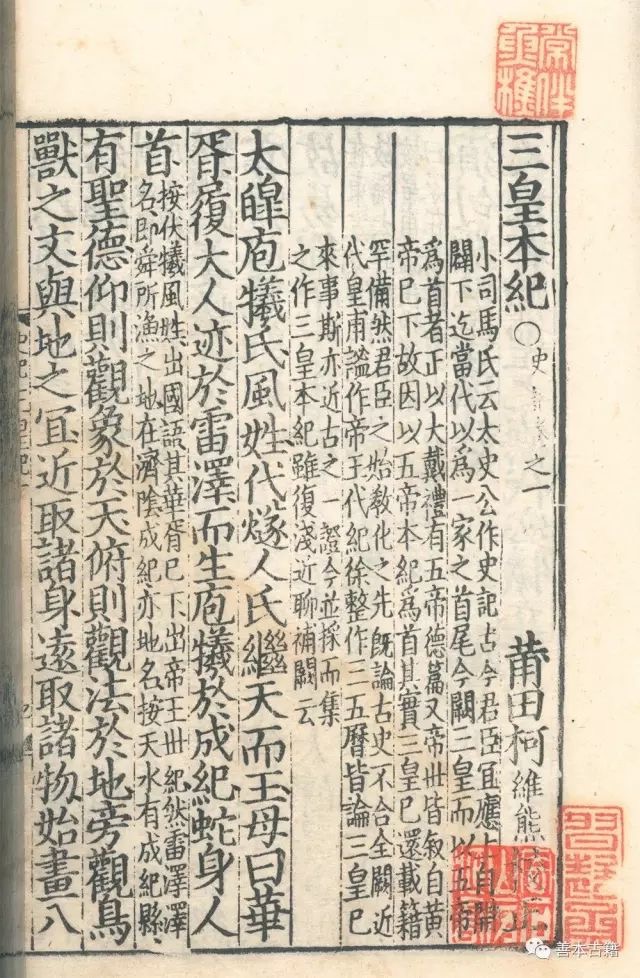 三皇本紀〇史之一 莆田柯維熊校正
小司馬氏云太史公作史記古今君臣宜應上自開
闢下迄當代以爲一家之首尾今闕三皇而以五帝
爲首者正以大戴禮有五帝德篇又帝丗皆叙自黄
帝已下故因以五帝本紀爲首其實三皇已還載籍
罕備然君臣之始敎化之先旣論古史不合全闕近
代皇甫謐作帝王代紀徐整作三五曆皆論三皇已
來事斯亦近古之一證今並採而集
之作三皇本紀雖復淺近聊補闕云
太皥庖犧氏風姓代燧人氏繼天而王母曰華
胥履大人迹於雷澤而生庖犧於成紀蛇身人
首
按伏犧風姓出國語其華胥已下出帝王丗紀然雷澤澤
名即舜所漁之地在濟陰成紀亦地名按天水有成紀縣
有聖德仰則觀象於天俯則觀法於地旁觀鳥
獸之文與地之宜近取諸身遠取諸物始畫八
善本古籍